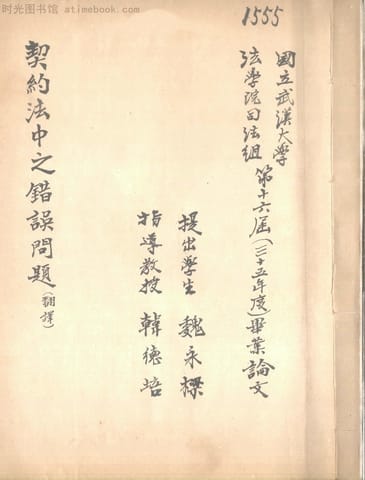 时光图书馆 - atimebook.com
1555
國立武漢大学
法學院司法組 第十六屆(三十五年度)畢業論文
提出學生 魏永樑
指導教授 韓德培
契約法中之錯誤問題(翻譯)